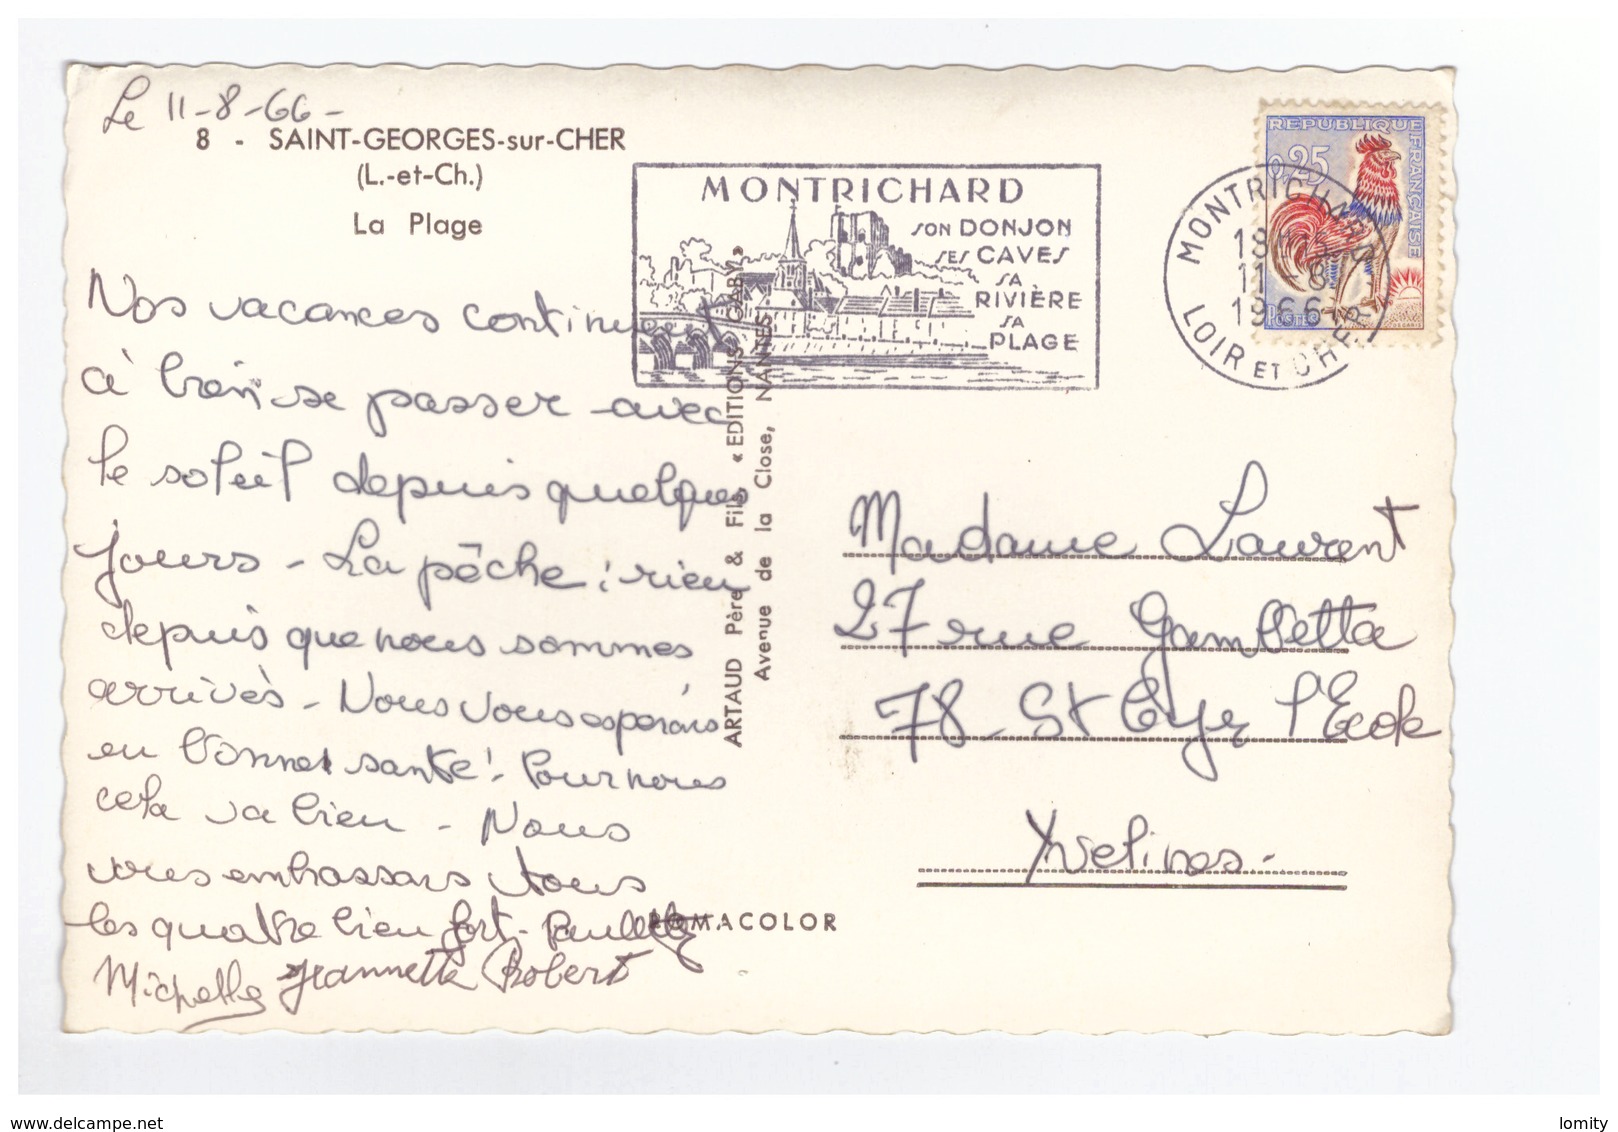 Le 11-8-66-
8 - SAINT-GEORGES-sur-CHER
(L.-et-Ch.)
La Plage
Nos vacances continuent
à bien se passer avec
le soleil depuis quelques
jours - La pêche : rien
depuis que nous sommes
arrivés - Nous vous espérons
en bonne santé ! Pour nous
cela va bien - Nous
vous embrassons tous
les quatre bien fort - Paulette
Michelle Jeannette Robert
MONTRICHARD
son DONJON
ses CAVES
sa
RIVIÈRE
sa
PLAGE
REPUBLIQUE FRANÇAISE
0,25
POSTES
MONTRICHARD
18H15
11-8
1966
LOIR ET CHER
ARTAUD Père & Fils, « EDITIONS GABY »
Avenue de la Close, NANTES
Madame Laurent
27 rue Gambetta
78 - St Cyr l'Ecole
Yvelines -
ROMACOLOR
www.delcampe.net
lomity